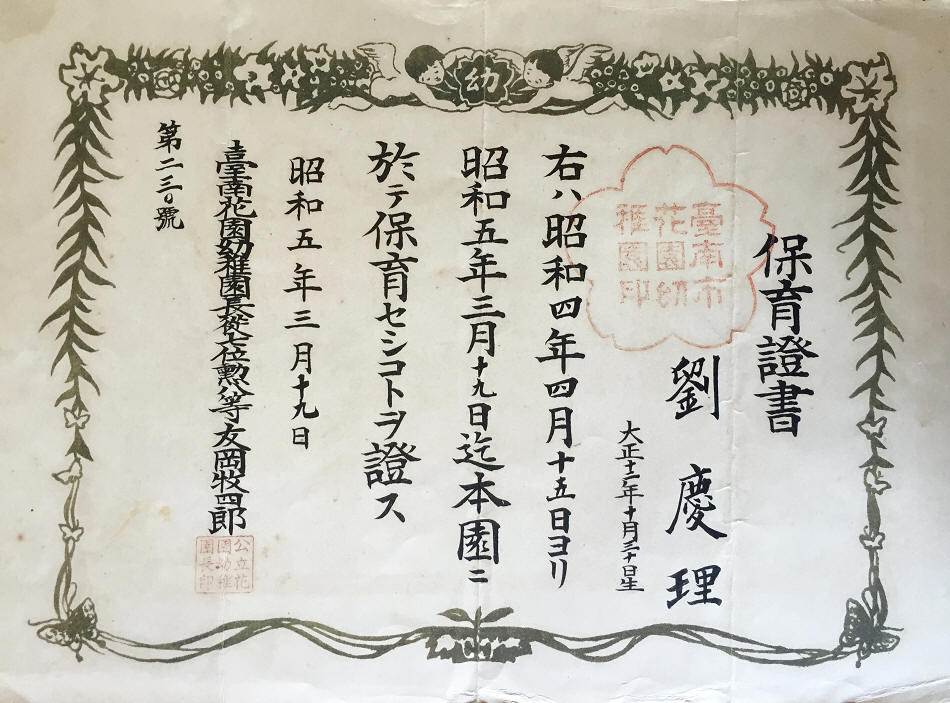 幼
保育證書
臺南市
花園幼
稚園印
劉慶理
大正十二年十月三十日生
右ハ昭和四年四月十五日ヨリ
昭和五年三月十九日迄本園ニ
於テ保育セシコトヲ證ス
昭和五年三月十九日
臺南花園幼稚園長從七位勲八等友岡牧四郎
公立花
園幼稚
園長印
第二三〇號